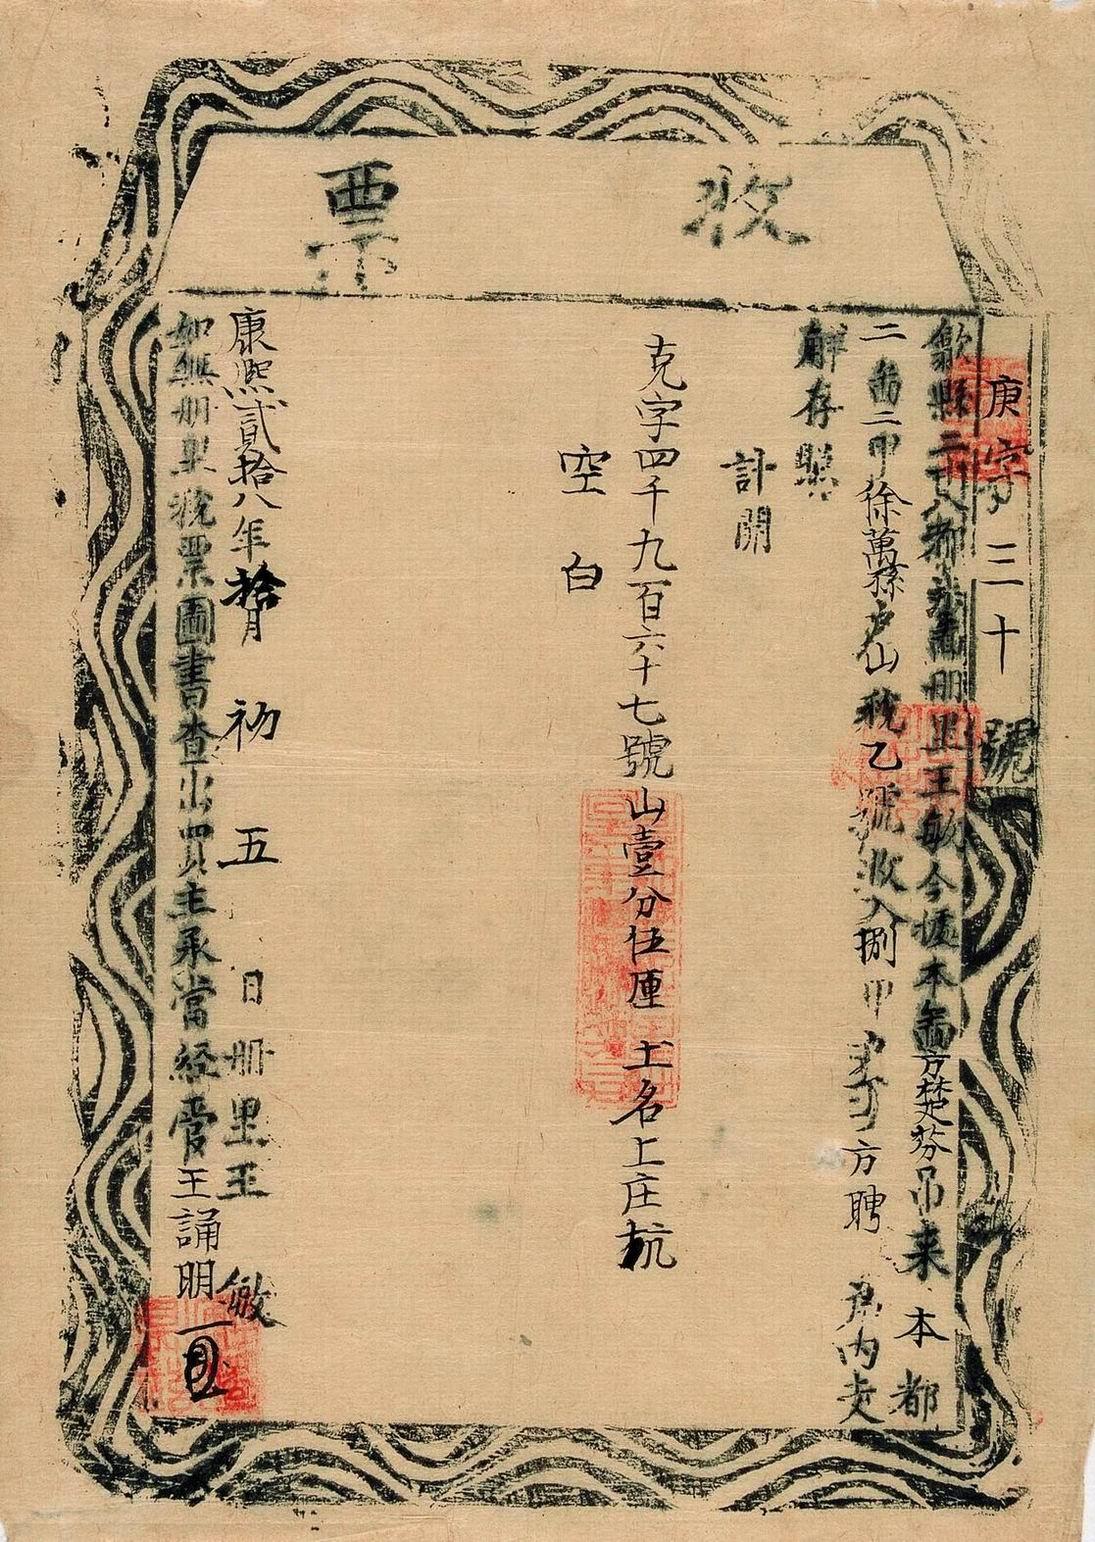 收票
庚字三十號
歙縣二十八都二圖冊里王敏今據本圖方楚芬吊來本都
二圖二甲徐萬孫戶山稅乙號收入捌甲方聘戶內支
解存照
計開
克字四千九百六十七號山壹分伍厘 土名上庄杭
空白
康熙貳拾八年拾月初五日冊里王敏
如無冊里稅票圖書查出買主承當經管王誦明